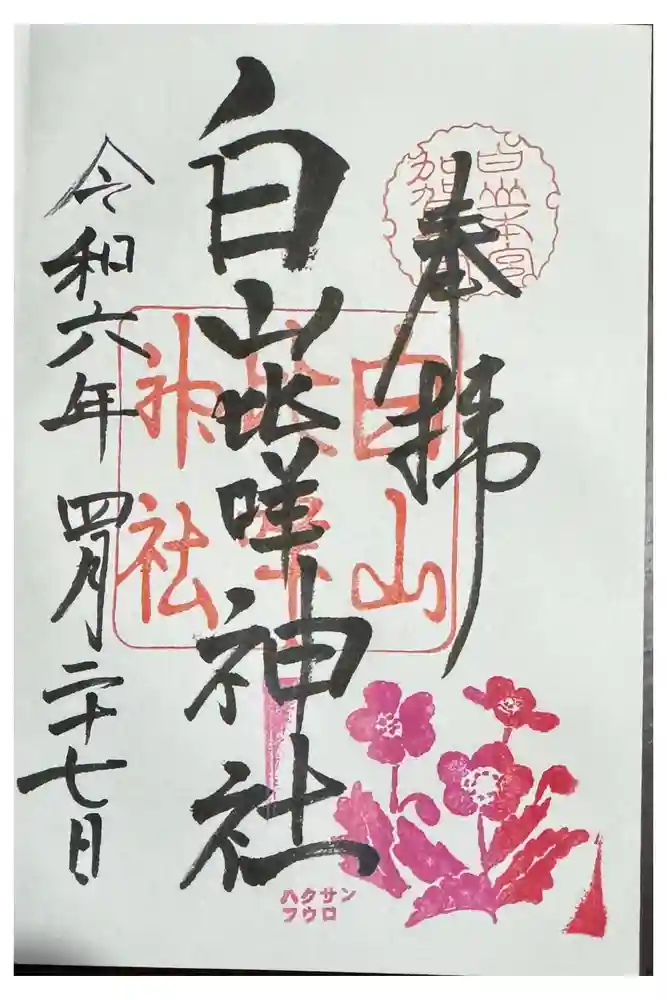 白山本宮
加賀
奉拝
白山
神社
白山比咩神社
令和六年四月二十七日
ハクサン
フウロ